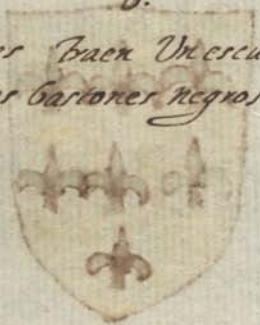 es Traen Un escu
s bastones negros